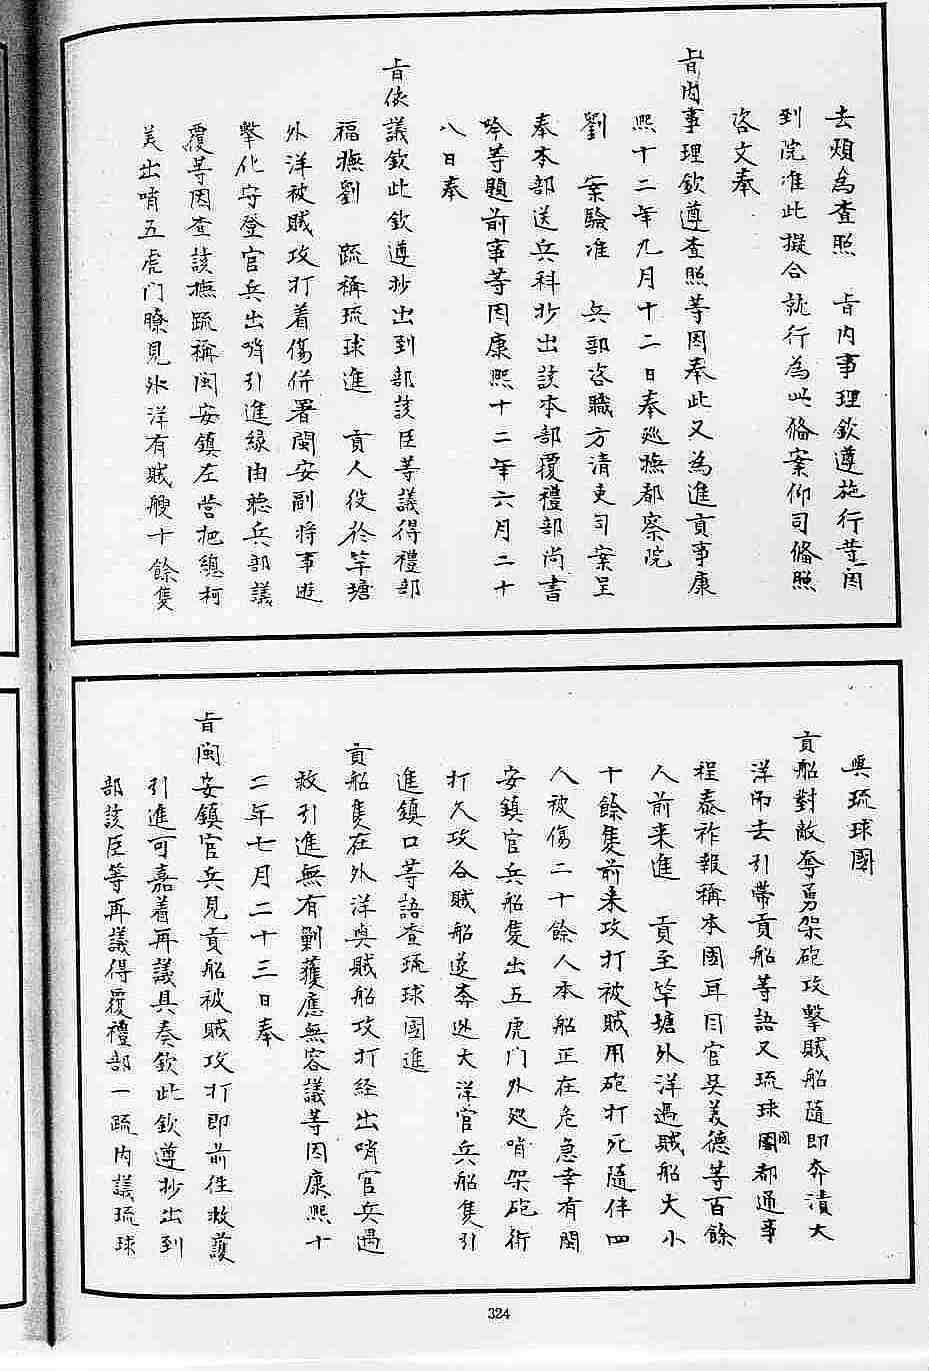 去煩為查照　旨內事理欽遵施行等因
到院准此擬合就行為此備案仰司備照
咨文奉
旨內事理欽遵查照等因奉此又為進貢事康
熙十二年九月十二日奉巡撫都察院
劉　案驗准　兵部咨職方清吏司案呈
奉本部送兵科抄出該本部覆禮部尚書
吟等題前事等因康熙十二年六月二十
八日奉
旨依議欽此欽遵抄出到部該臣等議得禮部
福撫劉　疏稱琉球進　貢人役於竿塘
外洋被賊攻打着傷併署閩安副將事遊
擊化守登官兵出哨引進緣由聽兵部議
覆等因查該撫疏稱閩安鎮左營把總柯
美出哨五虎门瞭見外洋有賊艘十餘隻
與琉球國
貢船對敵奪勇架砲攻擊賊船隨即奔潰大
洋而去引帶貢船等語又琉球國都通事
程泰祚報稱本國耳目官吳美德等百餘
人前来進　貢至竿塘外洋遇賊船大小
十餘隻前来攻打被賊用砲打死隨伴四
人被傷二十餘人本船正在危急幸有閩
安鎮官兵船隻出五虎门外巡哨架砲術
打久攻各賊船遂奔迯大洋官兵船隻引
進鎮口等語查琉球國進
貢船隻在外洋與賊船攻打経出哨官兵遇
救引進無有剿獲應無容議等因康熙十
二年七月二十三日奉
旨閩安鎮官兵見貢船被賊攻打即前往救護
引進可嘉着再議具奏欽此欽遵抄出到
部該臣等再議得覆禮部一疏内議琉球
324